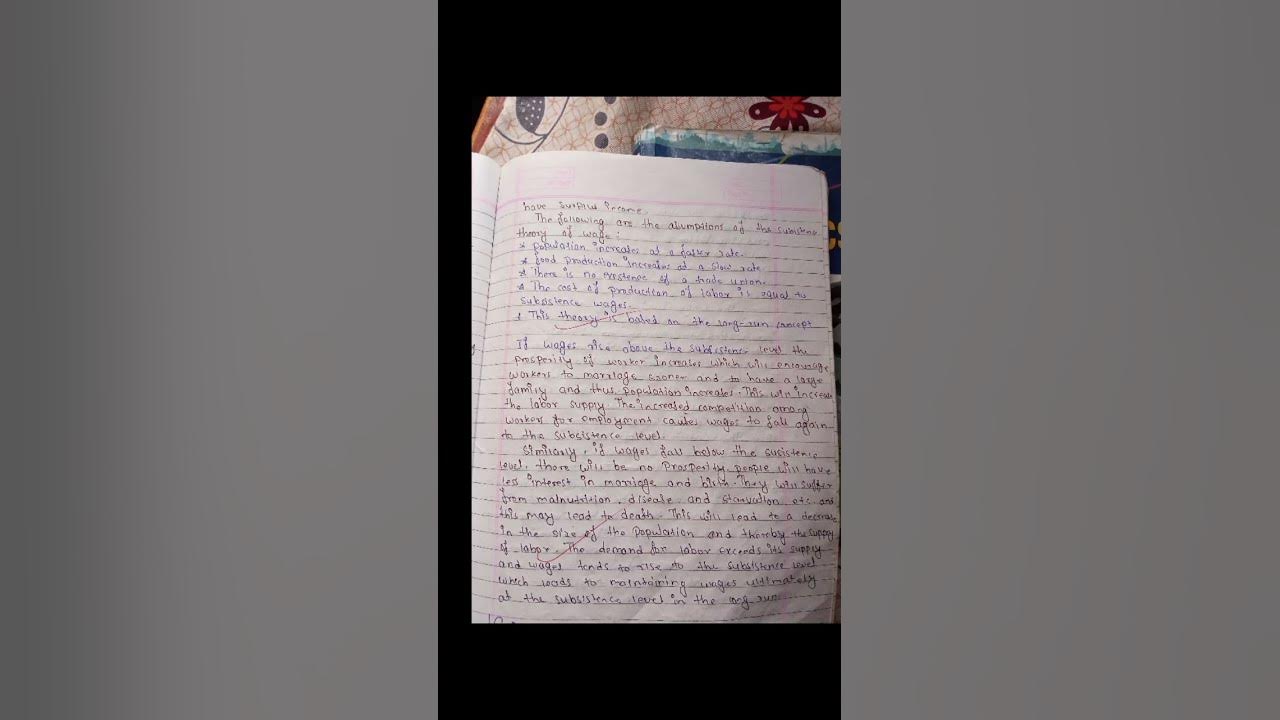 have surplus income.
The following are the assumptions of the subsistence
theory of wage:
* population increases at a faster rate.
* food production increases at a slow rate
* There is no existence of a trade union.
* The cost of production of labor is equal to
subsistence wages.
* This theory is based on the long-run concept
If wages rise above the subsistence level the
prosperity of worker increases which will encourage
workers to marriage sooner and to have a large
family and thus population increases. This will increase
the labor supply. The increased competition among
workers for employment causes wages to fall again
to the subsistence level.
Similarly, if wages fall below the susistence
level, there will be no prosperity. people will have
less interest in marriage and birth. They will suffer
from malnutrition, disease and starvation etc. and
this may lead to death. This will lead to a decrease
in the size of the population and thereby the supply
of labor. The demand for labor exceeds its supply
and wages tends to rise to the subsistence level
which leads to maintaining wages ultimately
at the subsistence level in the long run.